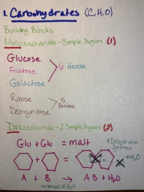 1. Carbohydrates (C,H,O)
Building Blocks
Monosaccharide - Simple Sugars (1)
Glucose
Fructose
Galactose
6 Hexose
Ribose
Deoxyribose
5 Pentose
Disaccharide - 2 Simple Sugars (2)
Glu + Glu = malt
+ H₂O
A + B → AB + H₂O